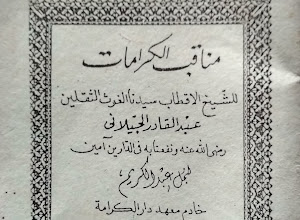 مناقب الكرامات
للشيخ الاقطاب سيدنا الغوث الثقلين
عبد القادر الجيلاني
رضي الله عنه ونفعنا به في الدارين آمين
عبد الكريم
خادم معهد دار الكرامة